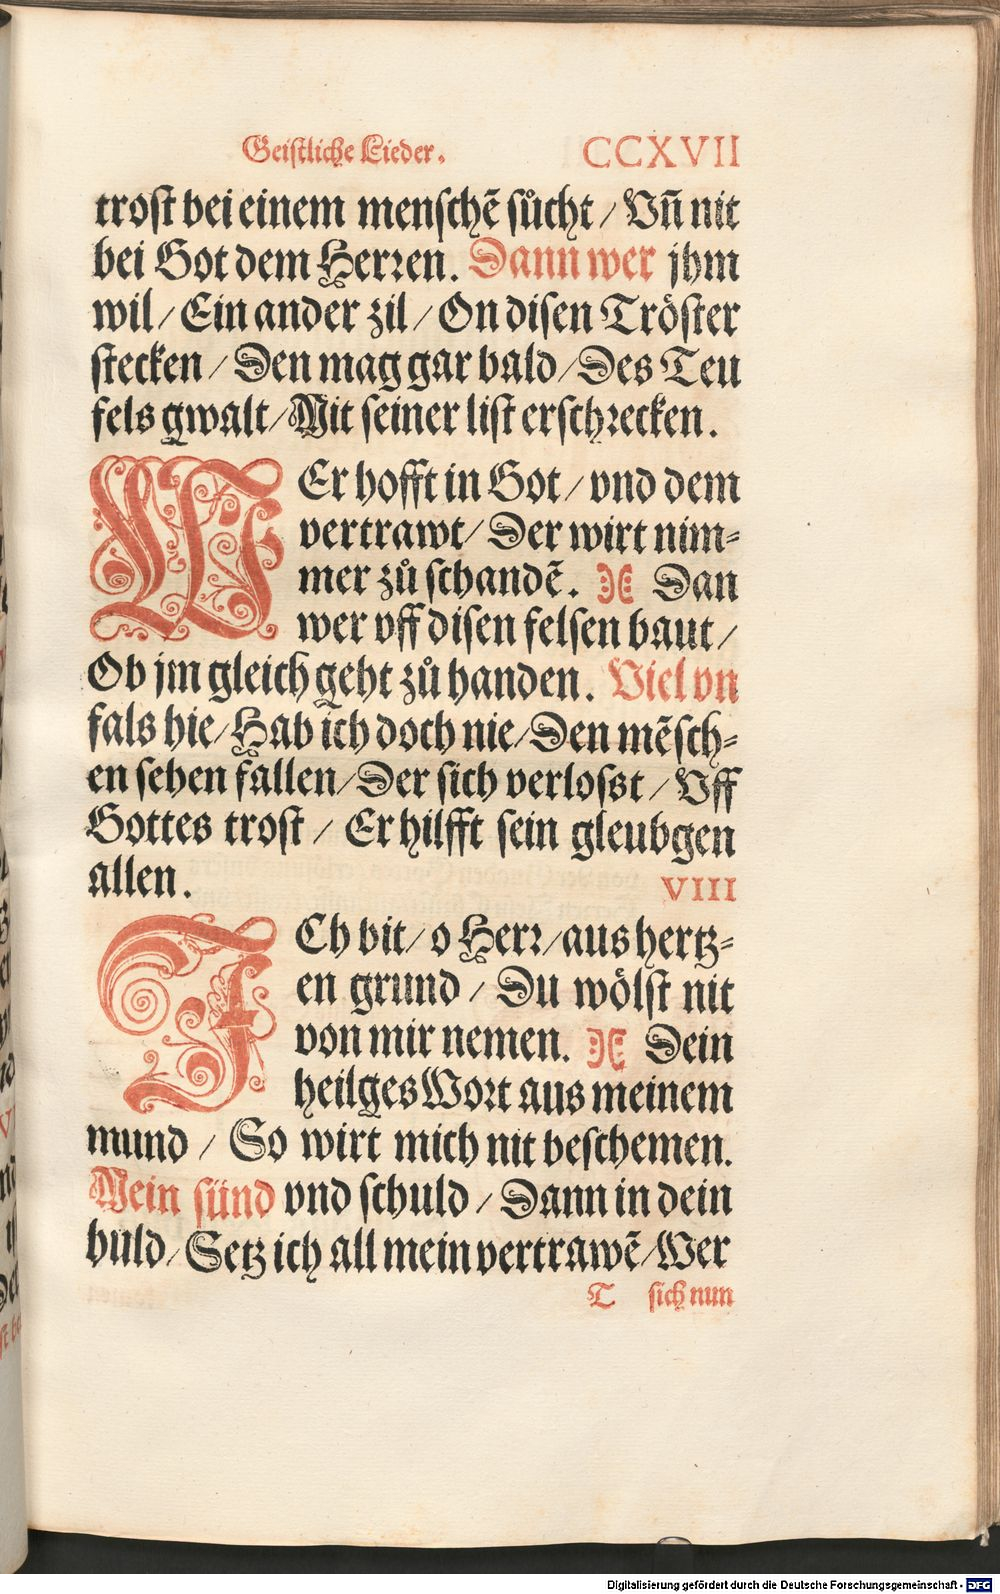 Geistliche Lieder. CCXVII
trost bei einem menschẽ sůcht / Vñ nit
bei Got dem Herren. Dann wer jhm
wil / Ein ander zil / On disen Tröster
stecken / Den mag gar bald / Des Teu
fels gwalt / Mit seiner list erschrecken.
WEr hofft in Got / vnd dem
vertrawt / Der wirt nim-
mer zů schandẽ. Dan
wer vff disen felsen baut /
Ob jm gleich geht zů handen. Viel vn
fals hie / Hab ich doch nie / Den mẽsch-
en sehen fallen / Der sich verlosst / Vff
Gottes trost / Er hilfft sein gleubgen
allen. VIII
ICh bit / o Herr / aus hertz-
en grund / Du wölst nit
von mir nemen. Dein
heilges Wort aus meinem
mund / So wirt mich nit beschemen.
Mein sünd vnd schuld / Dann in dein
huld / Setz ich all mein vertrawẽ / Wer
T sich nun
Digitalisierung gefördert durch die Deutsche Forschungsgemeinschaft - DFG